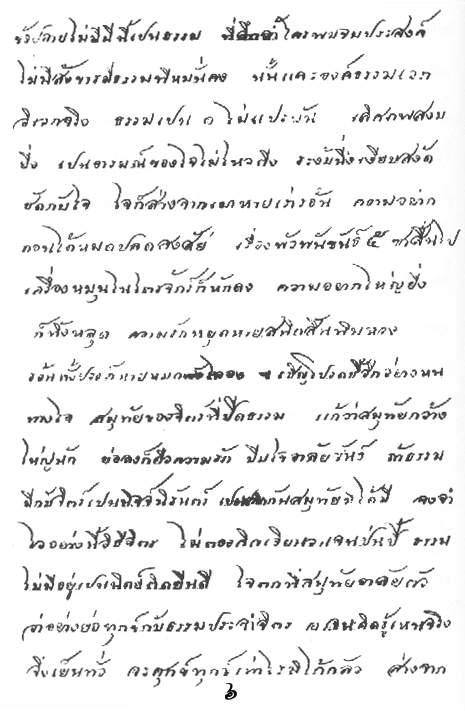 ปลายไม่มีนี้เป็นธรรม ที่ลึกล้ำไตรภพจบประสงค์
ไม่มีสังขารมีธรรมที่หมั่นคง นั้นแลองค์ธรรมเอก
วิเวกจริง ธรรมเปน ๑ ไม่แปรผัน เลิศภพสงบ
ยิ่ง เปนอารมณ์ของใจไม่ไหวติง ระงับนิ่งเงียบสงัด
ชัดกับใจ ใจก็สร่างจากเมาหายเร่าร้อน ความอยาก
ถอนได้หมดปลดสงสัย เรื่องพัวพันขันธ์ ๕ ซาสิ้นไป
เครื่องหมุนในไตรจักร์ก็หักลง ความอยากใหญ่ยิ่ง
ก็ทิ้งหลุด ความรักหยุดหายสนิทสิ้นพิศวง
ร้อนทั้งปวงก็หายหมด เชิญโปรดชี้อีกอย่างหน
ทางใจ สมุทัยของจิตร์ที่ปิดธรรม แก้ว่าสมุทัยกว้าง
ใหญ่นัก ย่อลงก็คือความรัก บีบใจอาลัยขันธ์ ถ้าธรรม
มีกับจิตร์เปนนิจจ์นิรันดร์ เปนเลิกกันสมุทัยมิได้มี จงจำ
ไว้อย่างนี้วิถีจิตร ไม่ต้องคิดเวียนวนจนป่นปี้ ธรรม
ไม่มีอยู่เปนนิตย์ติดยินดี ใจตกที่สมุทัยอาลัยตัว
ว่าอย่างย่อทุกข์กับธรรมประจำจิตร เอาจนคิดรู้เหนจริง
จึงเย็นทั่ว จะศุขทุกข์เท่าไรมิได้กลัว สร่างจาก
๖